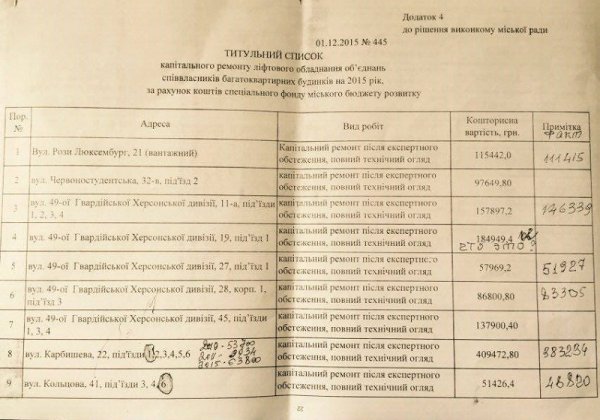 Додаток 4
до рішення виконкому міської ради
01.12.2015 № 445
ТИТУЛЬНИЙ СПИСОК
капітального ремонту ліфтового обладнання об'єднань
співвласників багатоквартирних будинків на 2015 рік,
за рахунок коштів спеціального фонду міського бюджету розвитку
Пор. № Адреса Вид робіт Кошторисна вартість, грн. Примітка
факт
1 Вул. Рози Люксембург, 21 (вантажний) Капітальний ремонт після експертного обстеження, повний технічний огляд 115442,0 111415
2 вул. Червоностудентська, 32-в, під'їзд 2 капітальний ремонт після експертного обстеження, повний технічний огляд 97649,80
3 вул. 49-ої Гвардійської Херсонської дивізії, 11-а, під'їзди 1, 2, 3, 4 капітальний ремонт після експертного обстеження, повний технічний огляд 157897,2 146339
4 вул. 49-ої Гвардійської Херсонської дивізії, 19, під'їзд 1 капітальний ремонт після експертного обстеження, повний технічний огляд 184949,4
что это?
5 вул. 49-ої Гвардійської Херсонської дивізії, 27, під'їзд 1 капітальний ремонт після експертного обстеження, повний технічний огляд 57969,2 51927
6 вул. 49-ої Гвардійської Херсонської дивізії, 28, корп. 1, під'їзд 3 капітальний ремонт після експертного обстеження, повний технічний огляд 86800,80 83305
7 вул. 49-ої Гвардійської Херсонської дивізії, 45, під'їзди 1, 3, 4 капітальний ремонт після експертного обстеження, повний технічний огляд 137900,40
8 вул. Карбишева, 22, під'їзди 1,2,3,4,5,6 капітальний ремонт після експертного обстеження, повний технічний огляд 409472,80 383234
2015-63800
9 вул. Кольцова, 41, під'їзди 3, 4, 6 капітальний ремонт після експертного обстеження, повний технічний огляд 51426,4 46820
22